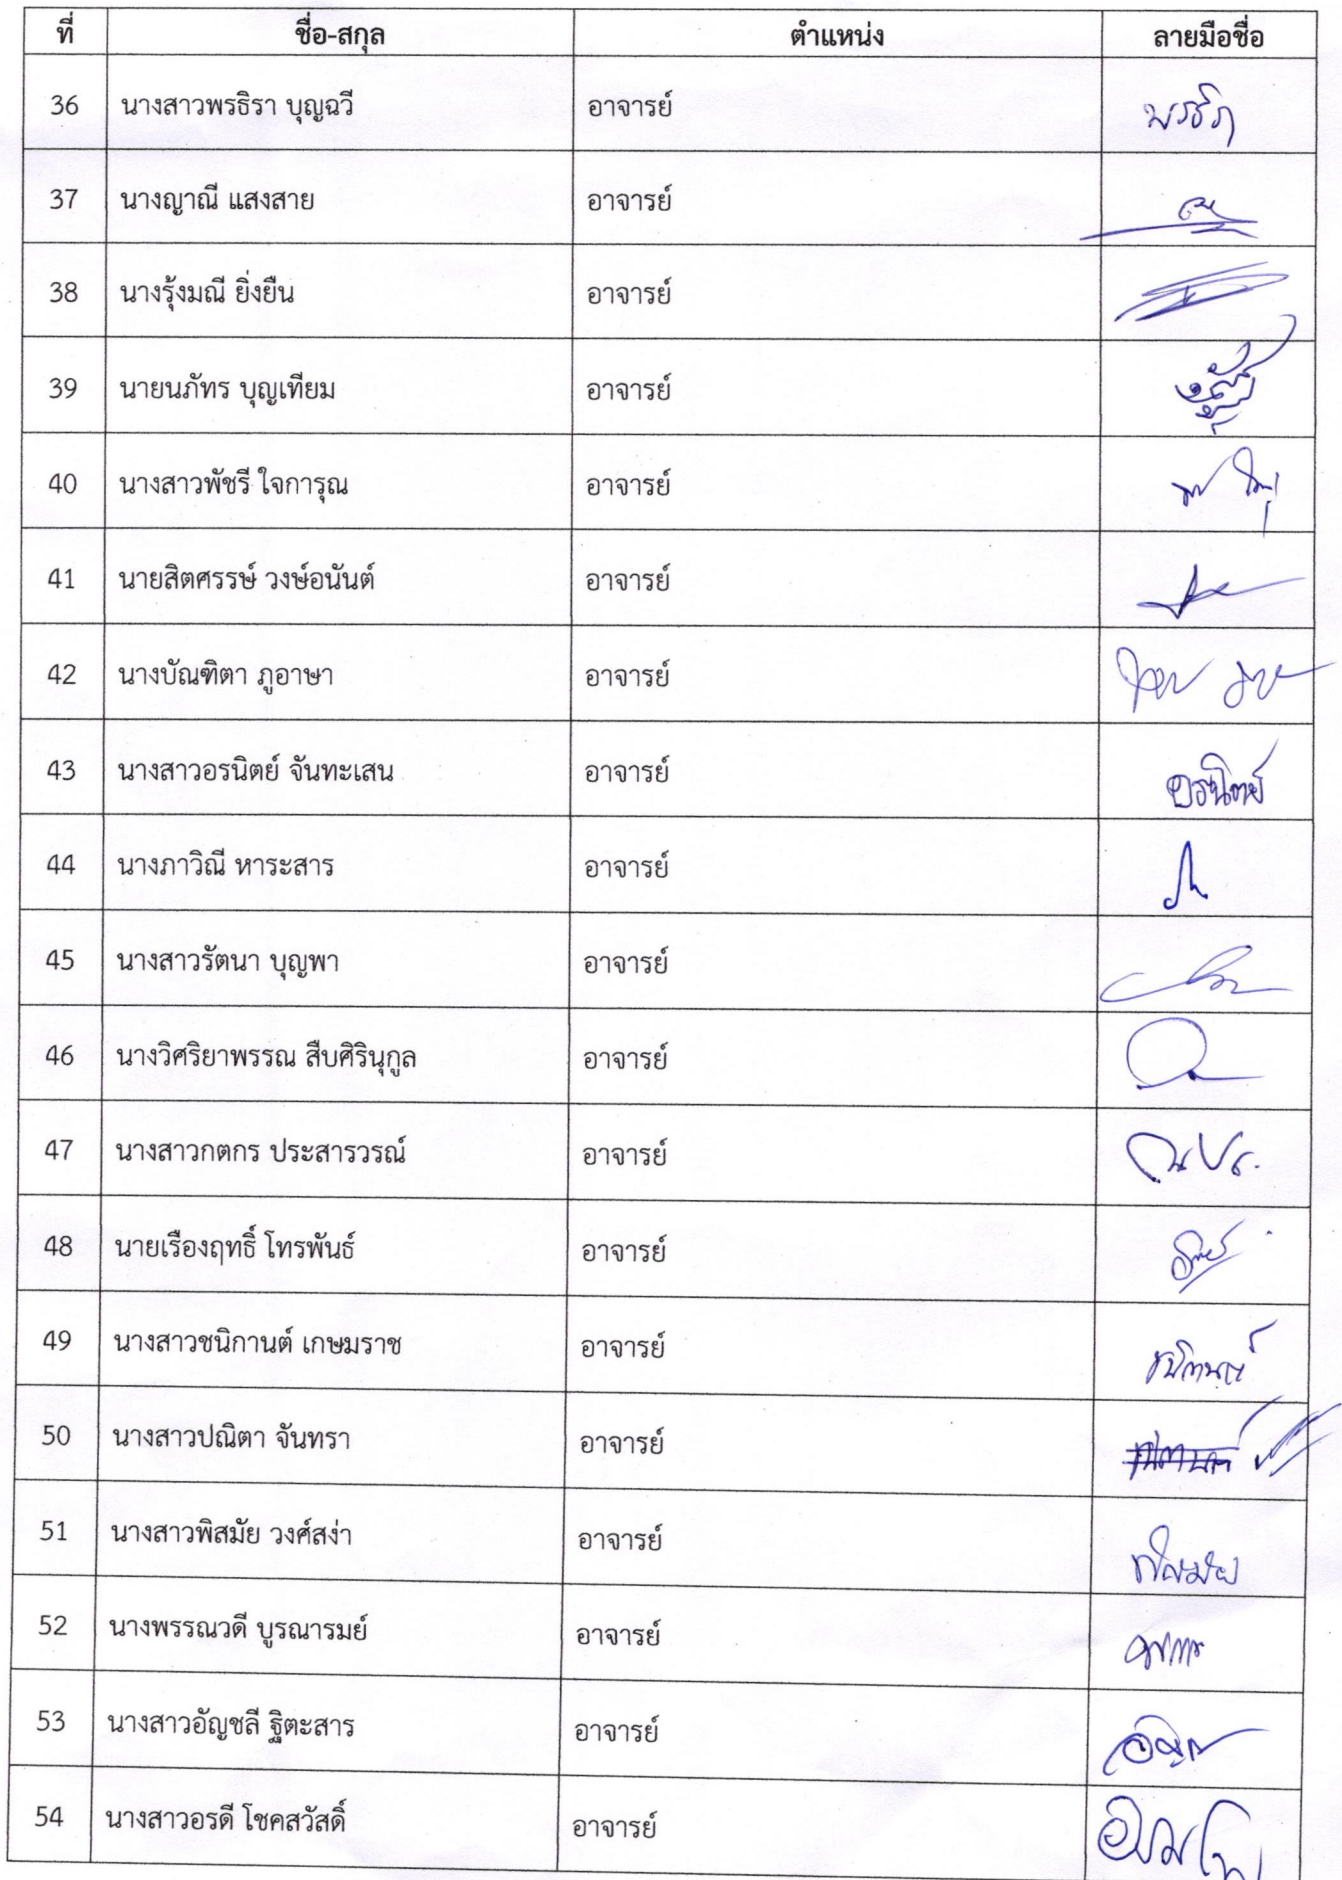 ที่ ชื่อ-สกุล ตำแหน่ง ลายมือชื่อ
36 นางสาวพรธิรา บุญฉวี อาจารย์ พรธิรา
37 นางญาณี แสงสาย อาจารย์
38 นางรุ้งมณี ยิ่งยืน อาจารย์
39 นายนภัทร บุญเทียม อาจารย์
40 นางสาวพัชรี ใจการุณ อาจารย์
41 นายสิตศรรษ์ วงษ์อนันต์ อาจารย์
42 นางบัณฑิตา ภูอาษา อาจารย์
43 นางสาวอรนิตย์ จันทะเสน อาจารย์ อรนิตย์
44 นางภาวิณี หาระสาร อาจารย์
45 นางสาวรัตนา บุญพา อาจารย์
46 นางวิศริยาพรรณ สืบศิรินุกูล อาจารย์
47 นางสาวกตกร ประสารวรณ์ อาจารย์
48 นายเรืองฤทธิ์ โทรพันธ์ อาจารย์
49 นางสาวชนิกานต์ เกษมราช อาจารย์ ชนิกานต์
50 นางสาวปณิตา จันทรา อาจารย์
51 นางสาวพิสมัย วงศ์สง่า อาจารย์ พิสมัย
52 นางพรรณวดี บูรณารมย์ อาจารย์
53 นางสาวอัญชลี ฐิตะสาร อาจารย์
54 นางสาวอรดี โชคสวัสดิ์ อาจารย์